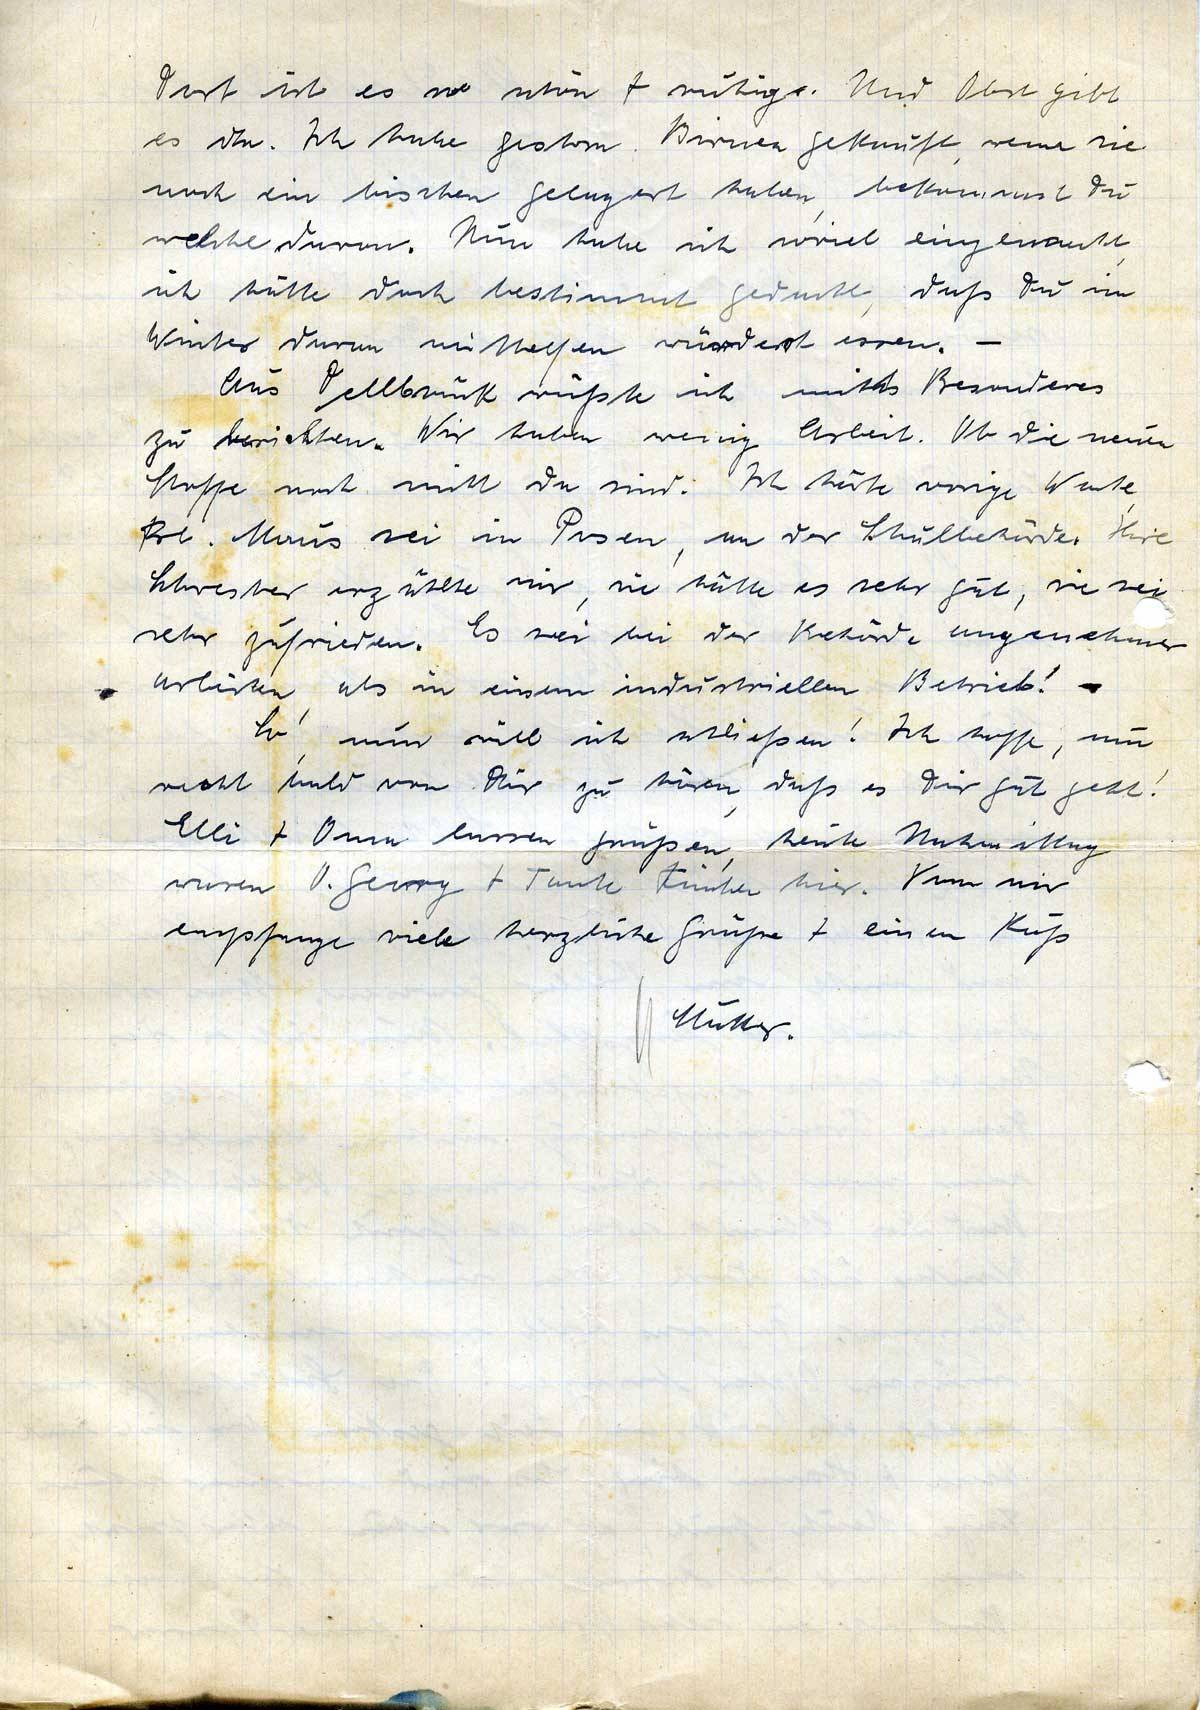 Dort ist es so schön + ruhig. Und Obst gibt
es da. Ich habe gestern Birnen gekauft, wenn sie
noch ein bischen gelagert haben, bekommst Du
welche davon. Nun habe ich soviel eingemacht,
ich hätte doch bestimmt gedacht, daß Du im
Winter daran mithelfen würdest essen. —
Aus Dellbrück wüßte ich nichts Besonderes
zu berichten. Wir haben wenig Arbeit. Ob die neuen
Stoffe noch nicht da sind. Ich hörte vorige Woche,
Frl. Maus sei in Posen, an der Schulbehörde. Ihre
Schwester erzählte mir, sie hätte es sehr gut, sie sei
sehr zufrieden. Es sei bei der Behörde angenehmer
arbeiten, als in einem industriellen Betrieb! —
So, nun will ich schließen! Ich hoffe, nun
recht bald von Dir zu hören, daß es Dir gut geht!
Elli + Oma lassen grüßen, heute Nachmittag
waren O. Georg + Tante hier. Von mir
empfange viele herzliche Grüße + einen Kuß
Mutter.